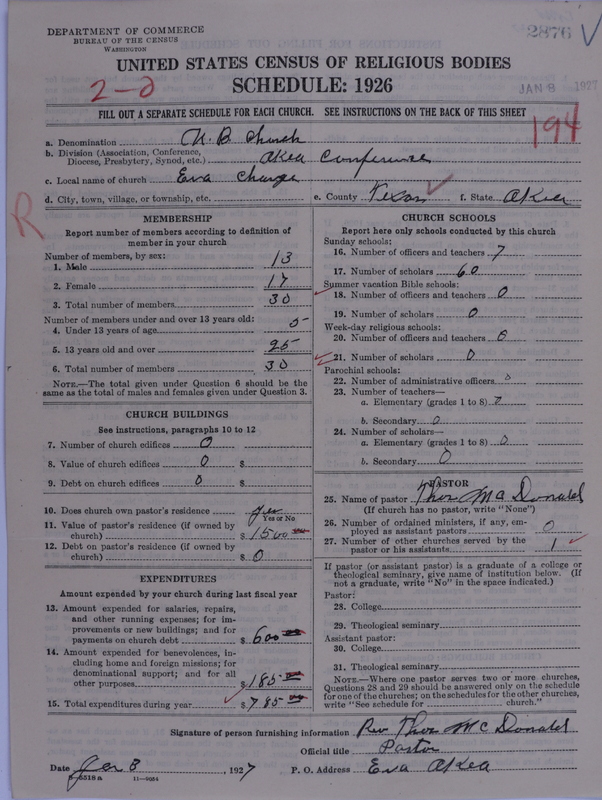 DEPARTMENT OF COMMERCE
BUREAU OF THE CENSUS
WASHINGTON
2876
UNITED STATES CENSUS OF RELIGIOUS BODIES
SCHEDULE: 1926
2-D
JAN 8 1927
FILL OUT A SEPARATE SCHEDULE FOR EACH CHURCH. SEE INSTRUCTIONS ON THE BACK OF THIS SHEET
194
a. Denomination U. B. Church
b. Division (Association, Conference, Diocese, Presbytery, Synod, etc.) Okla Conference
c. Local name of church Eva Charge
d. City, town, village, or township, etc. e. County Texas f. State Okla
R
MEMBERSHIP
Report number of members according to definition of
member in your church
Number of members, by sex:
1. Male 13
2. Female 17
3. Total number of members 30
Number of members under and over 13 years old:
4. Under 13 years of age 5
5. 13 years old and over 25
6. Total number of members 30
NOTE.—The total given under Question 6 should be the
same as the total of males and females given under Question 3.
CHURCH BUILDINGS
See instructions, paragraphs 10 to 12
7. Number of church edifices 0
8. Value of church edifices 0 $
9. Debt on church edifices 0 $
10. Does church own pastor's residence yes
Yes or No
11. Value of pastor's residence (if owned by
church) $ 1500
12. Debt on pastor's residence (if owned by
church) $ 0
EXPENDITURES
Amount expended by your church during last fiscal year
13. Amount expended for salaries, repairs,
and other running expenses; for im-
provements or new buildings; and for
payments on church debt $ 600
14. Amount expended for benevolences, in-
cluding home and foreign missions; for
denominational support; and for all
other purposes $ 185
15. Total expenditures during year $ 785
CHURCH SCHOOLS
Report here only schools conducted by this church
Sunday schools:
16. Number of officers and teachers 7
17. Number of scholars 60
Summer vacation Bible schools:
18. Number of officers and teachers 0
19. Number of scholars 0
Week-day religious schools:
20. Number of officers and teachers 0
21. Number of scholars 0
Parochial schools:
22. Number of administrative officers 0
23. Number of teachers—
a. Elementary (grades 1 to 8)
b. Secondary 0
24. Number of scholars—
a. Elementary (grades 1 to 8) 0
b. Secondary 0
PASTOR
25. Name of pastor Thos McDonald
(If church has no pastor, write "None")
26. Number of ordained ministers, if any, em-
ployed as assistant pastors 0
27. Number of other churches served by the
pastor or his assistants 1
If pastor (or assistant pastor) is a graduate of a college or
theological seminary, give name of institution below. (If
not a graduate, write "No" in the space indicated.)
Pastor:
28. College
29. Theological seminary
Assistant pastor:
30. College
31. Theological seminary
NOTE.—Where one pastor serves two or more churches,
Questions 28 and 29 should be answered only on the schedule
for one of the churches; on the schedules for the other churches,
write "See schedule for church."
Signature of person furnishing information Rev Thos McDonald
Official title Pastor
Date Jan 8 1927 P. O. Address Eva Okla
6518 a 11-9084